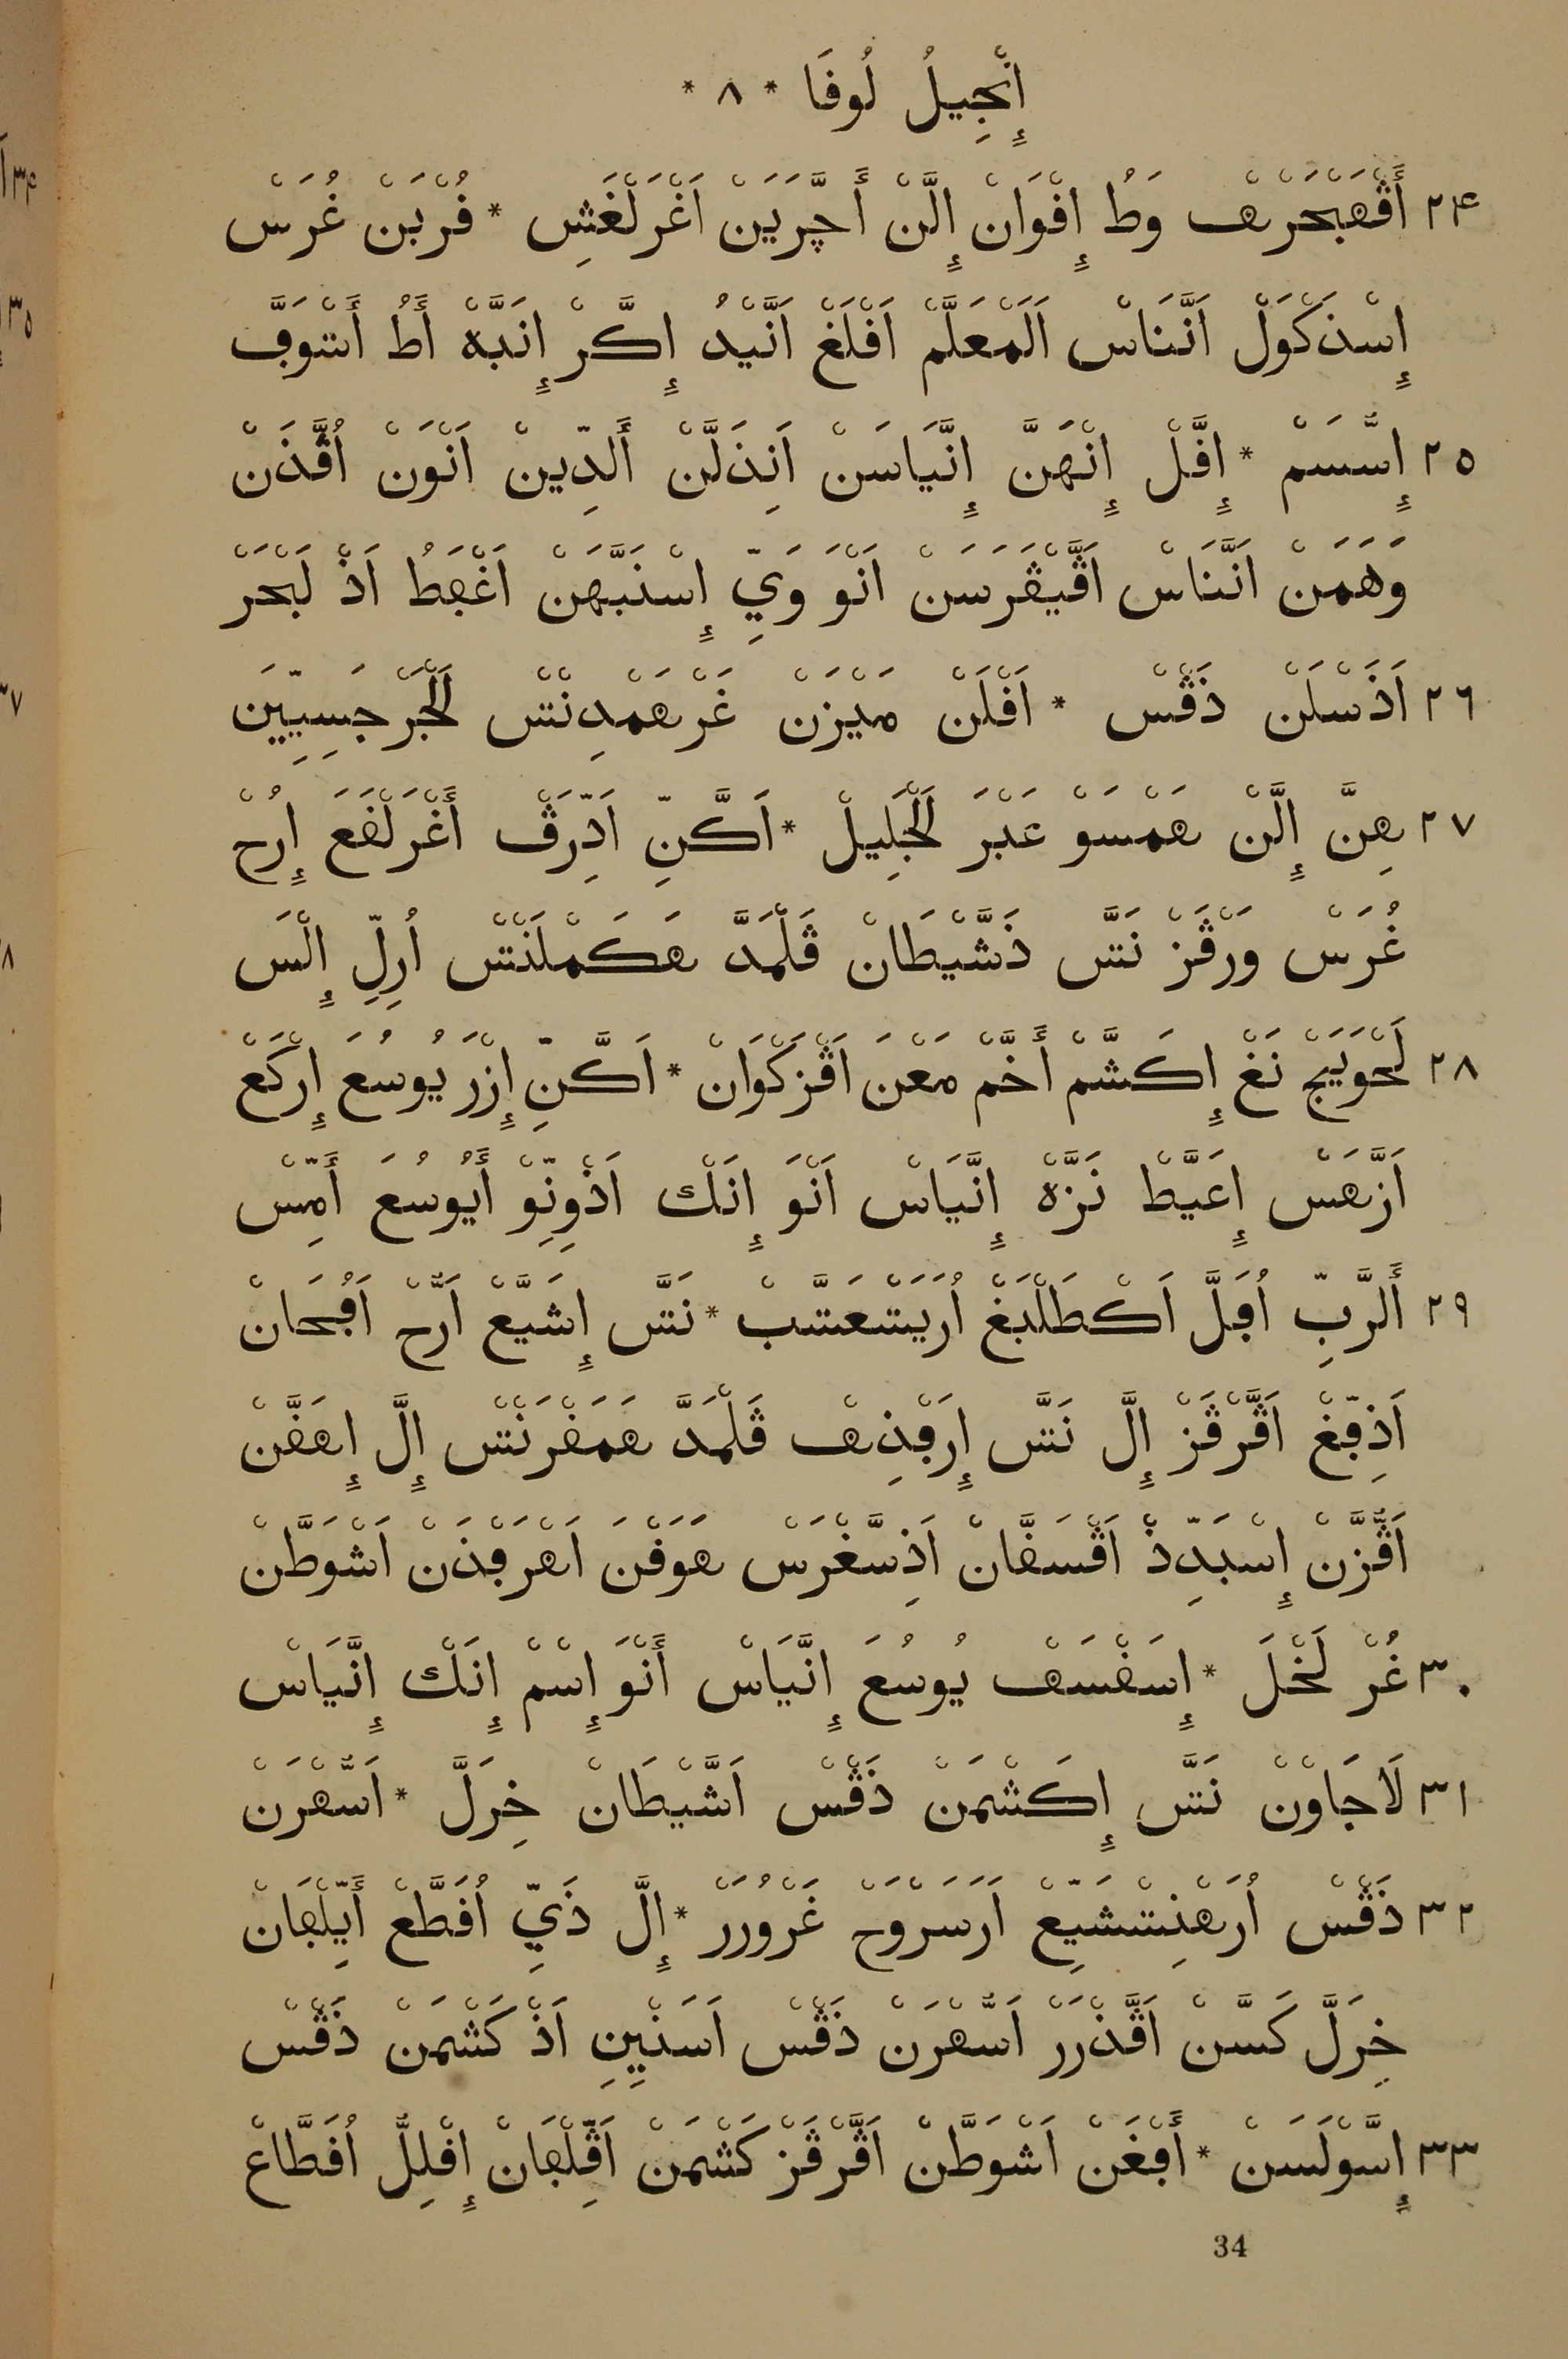 إِنْجِيلُ لُوقَا * ٨ *
٢٤ أَڤْهَبْحَرْهْ وَطُ إِفْوَانْ إِلَّنْ أَچَّرَيَنْ اَغْرَلْغَشِ * فُرْبَنْ غُرَسْ
إِسْدَكْوَلْ اَنَّنَاسْ اَلَمْعَلَّمْ اَفْلَغْ اَنَّيْدُ إِكَّرْ إِنَبَّهْ أَطُ أَتْوَڢَّ
٢٥ إِسُّسَمْ * إِڢَّلْ إِنْهَنَّ إِنَّيَاسَنْ اَنِذَلَّنْ أَلدِّينْ اَنْوَنْ اُڤَّذَنْ
وَهَمَنْ اَنَّنَاسْ اَڤَّيْڤَرَسَنْ اَنْوَ وَيِّ إِسْنَبَّهَنْ اَغْڢَطُ اَذْ لَبْحَرْ
٢٦ اَذَسْلَنْ ذَڤْسْ * اَفْلَنْ مَيْزَنْ غَرْهَمْدِنْتْسْ لَجَرْجَسِيِّينَ
٢٧ هِنَّ إِلَّنْ هَمْسَوْ عَبْرَ لَجَلِيلْ * اَكَّنِّ اَدِّرَڤْ أَغْرَلْفَعَ إِرُحْ
غُرَسْ وَرْڤَزْ نَتَّسْ ذَشَّيْطَانْ ڤَلْمَدَّ هَكَمْلَنْتْسْ اُرِلِّ إِلْسَ
٢٨ لَحْوَيَجْ نَغْ إِكَشَّمْ أَخَّمْ مَعْنَ اَڤْزَكْوَانْ * اَكَّنِّ إِزْرَ يُوسُعَ إِرْكَعْ
اَزَّهَسْ إِعَيَّطْ نَزَّهْ إِنَّيَاسْ اَنْوَ إِنَكْ اَذْوِنِّوْ أَيُوسُعَ أَمِّسْ
٢٩ أَلرَّبِّ اُڢَلَّ اَكْطَلْبَغْ اُرَيَتْعَتَّبْ * نَتَّسْ إِشَيَّعْ اَرُّحْ اَڢُحَانْ
اَذِڢِّغْ اَڤَّرْڤَزْ إِلَّ نَتَّسْ إِرَڢْذِهْ ڤَلْمَدَّ هَمَفْرَنْتْسْ إِلَّ إِهَفَّنْ
اَڤُّزَّنْ إِسْبَدِّذْ اَڤْسَفَّانْ اَذِسَّغْرَسْ هَوَفْنَ اَهْرَڢْذَنْ اَشْوَطَّنْ
٣٠ غُرْ لَخْلَ * إِسَفْسَهْ يُوسُعَ إِنَّيَاسْ أَنْوَ إِسْمْ إِنَكْ إِنَّيَاسْ
٣١ لَاجَاوْنْ نَتَّسْ إِكَشْمَنْ ذَڤْسْ اَشَّيْطَانْ خِرَلَّ * اَسُّهْرَنْ
٣٢ ذَڤْسْ اُرَهْنِتْشَيِّعْ اَرَسَرْوَحْ غَرْوُرَرْ * إِلَّ ذَيِّ اُفَطَّعْ أَيِّلْڢَانْ
خِرَلَّ كَسَّنْ اَڤَّذْرَرْ اَسُّهْرَنْ ذَڤْسْ اَسَنْيِنِ اَذْ كَشْمَنْ ذَڤْسْ
٣٣ إِسَّوْلَسَنْ * أَڢْغَنْ اَشْوَطَّنْ اَڤَّرْڤَزْ كَشْمَنْ اَڤِّلْڢَانْ إِفْلِلُّ اُفَطَّاعْ
34